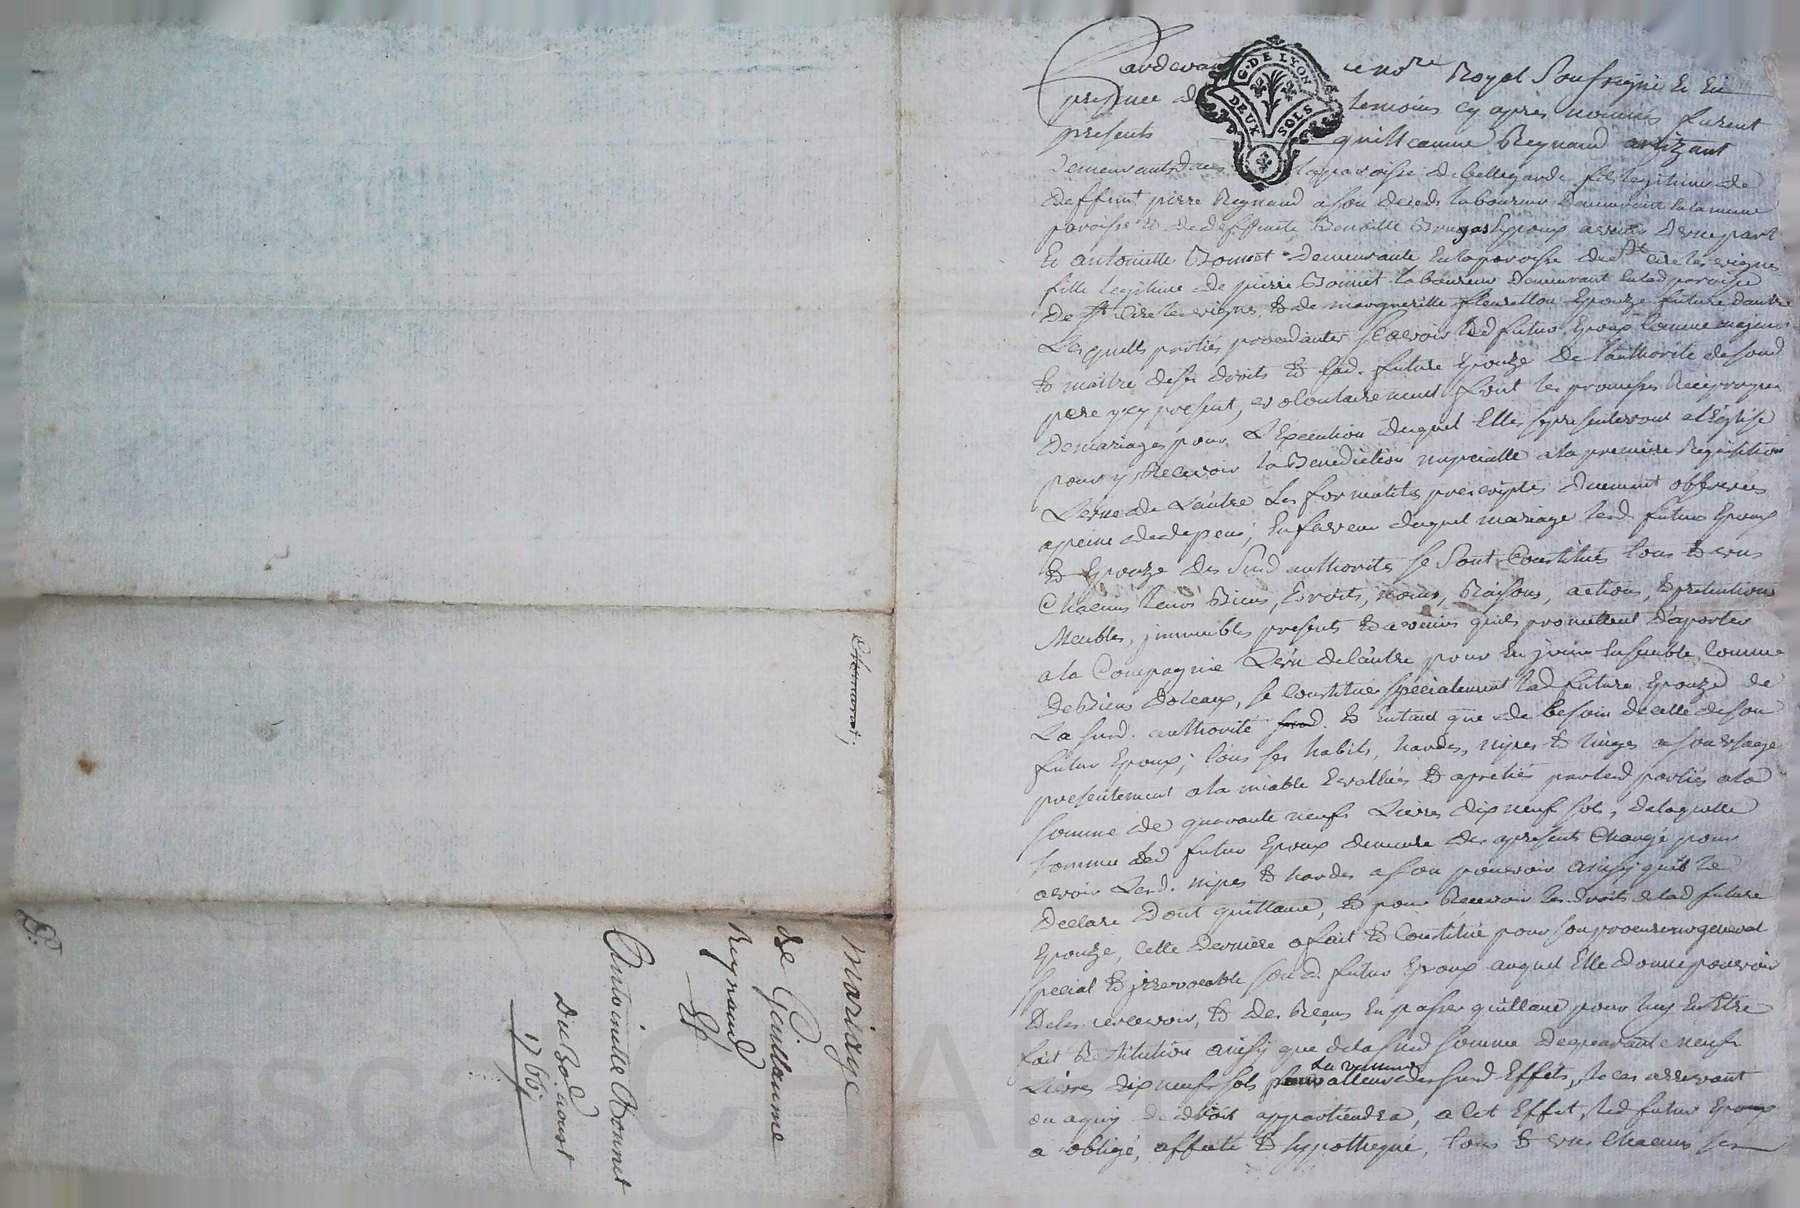 Pardevant le no.re Royal Sousigné & en
presence des temoins cy apres només furent
presents guilleaume Reynaud artizant
demeurant dans la paroisse de bellegarde fils legitime de
deffunt pierre Reynaud a son deceds laboureur demeurant en la meme
paroisse & de deffunte Benoitte Brugas Epoux avenir d'une part
Et antoinette Bonnet demeurante en la paroisse de St Cire les vignes
fille legitime de pierre Bonnet laboureur demeurant en lad paroisse
de St Cire les vignes, & de margueritte fleurillon Epouze future d'autre
Lesquelles parties procedantes scavoir led futur Epoux comme majeur
& maitre de ses droits & lad. future Epouze de l'authorité de sond
pere y cy present, volontairement font les promesses Reciproques
de mariage pour L'Execution duquel Elles se presenteront a l'Eglise
pour y Recevoir la Benediction nupcialle a la premiere Requisition
L'une de L'autre les formalités prescriptes duement observées
a peine de depens; En faveur duquel mariage lesd. futur Epoux
& Epouze des susd authorités se sont Constitués tous & uns
Chacuns leurs Biens, Droits, noms, Raisons, actions, & pretentions
Meubles, jmmeubles presents & avenirs quils promettent d'aporter
a la Compagnie L'un de l'autre pour En jouir Ensemble Comme
de Biens doteaux, se constitue specialement lad future Epouze de
La susd. authorité sand. & En tant que de besoin de celle de son
futur Epoux; tous ses habits, hardes, nipes & linges a son usage
presentement a la miable Evallués & apretiés par lesd parties a la
somme de quarante neufs Livres dix neuf sols, de laquelle
somme led futur Epoux demeure des apresent Chargé pour
avoir Lesd. nipes & hardes a son pouvoir ainsy quil le
Declare Dont quittance, & pour Recevoir les droits de lad future
Epouze, cette derniere a fait & Constitué pour son procureur general
special & jrrevocable sond. futur Epoux auquel Elle donne pouvoir
de les recevoir, & des Reçus En passer quittance pour luy En Etre
fait Restitution ainsy que de la susd somme de quarante neufs
Livres dix neufs sols pour La valeur des susd Effets, le cas arrivant
ou a quy de droit appartiendra, a cet Effet, led futur Epoux
a obligé, affecté & hypothequé, tous & uns Chacuns ses
Mariage
de Guillaume
Reynaud
Et
Antoinette Bonnet
Du 20.e aoust
1766
Pascal CHAPEYRON